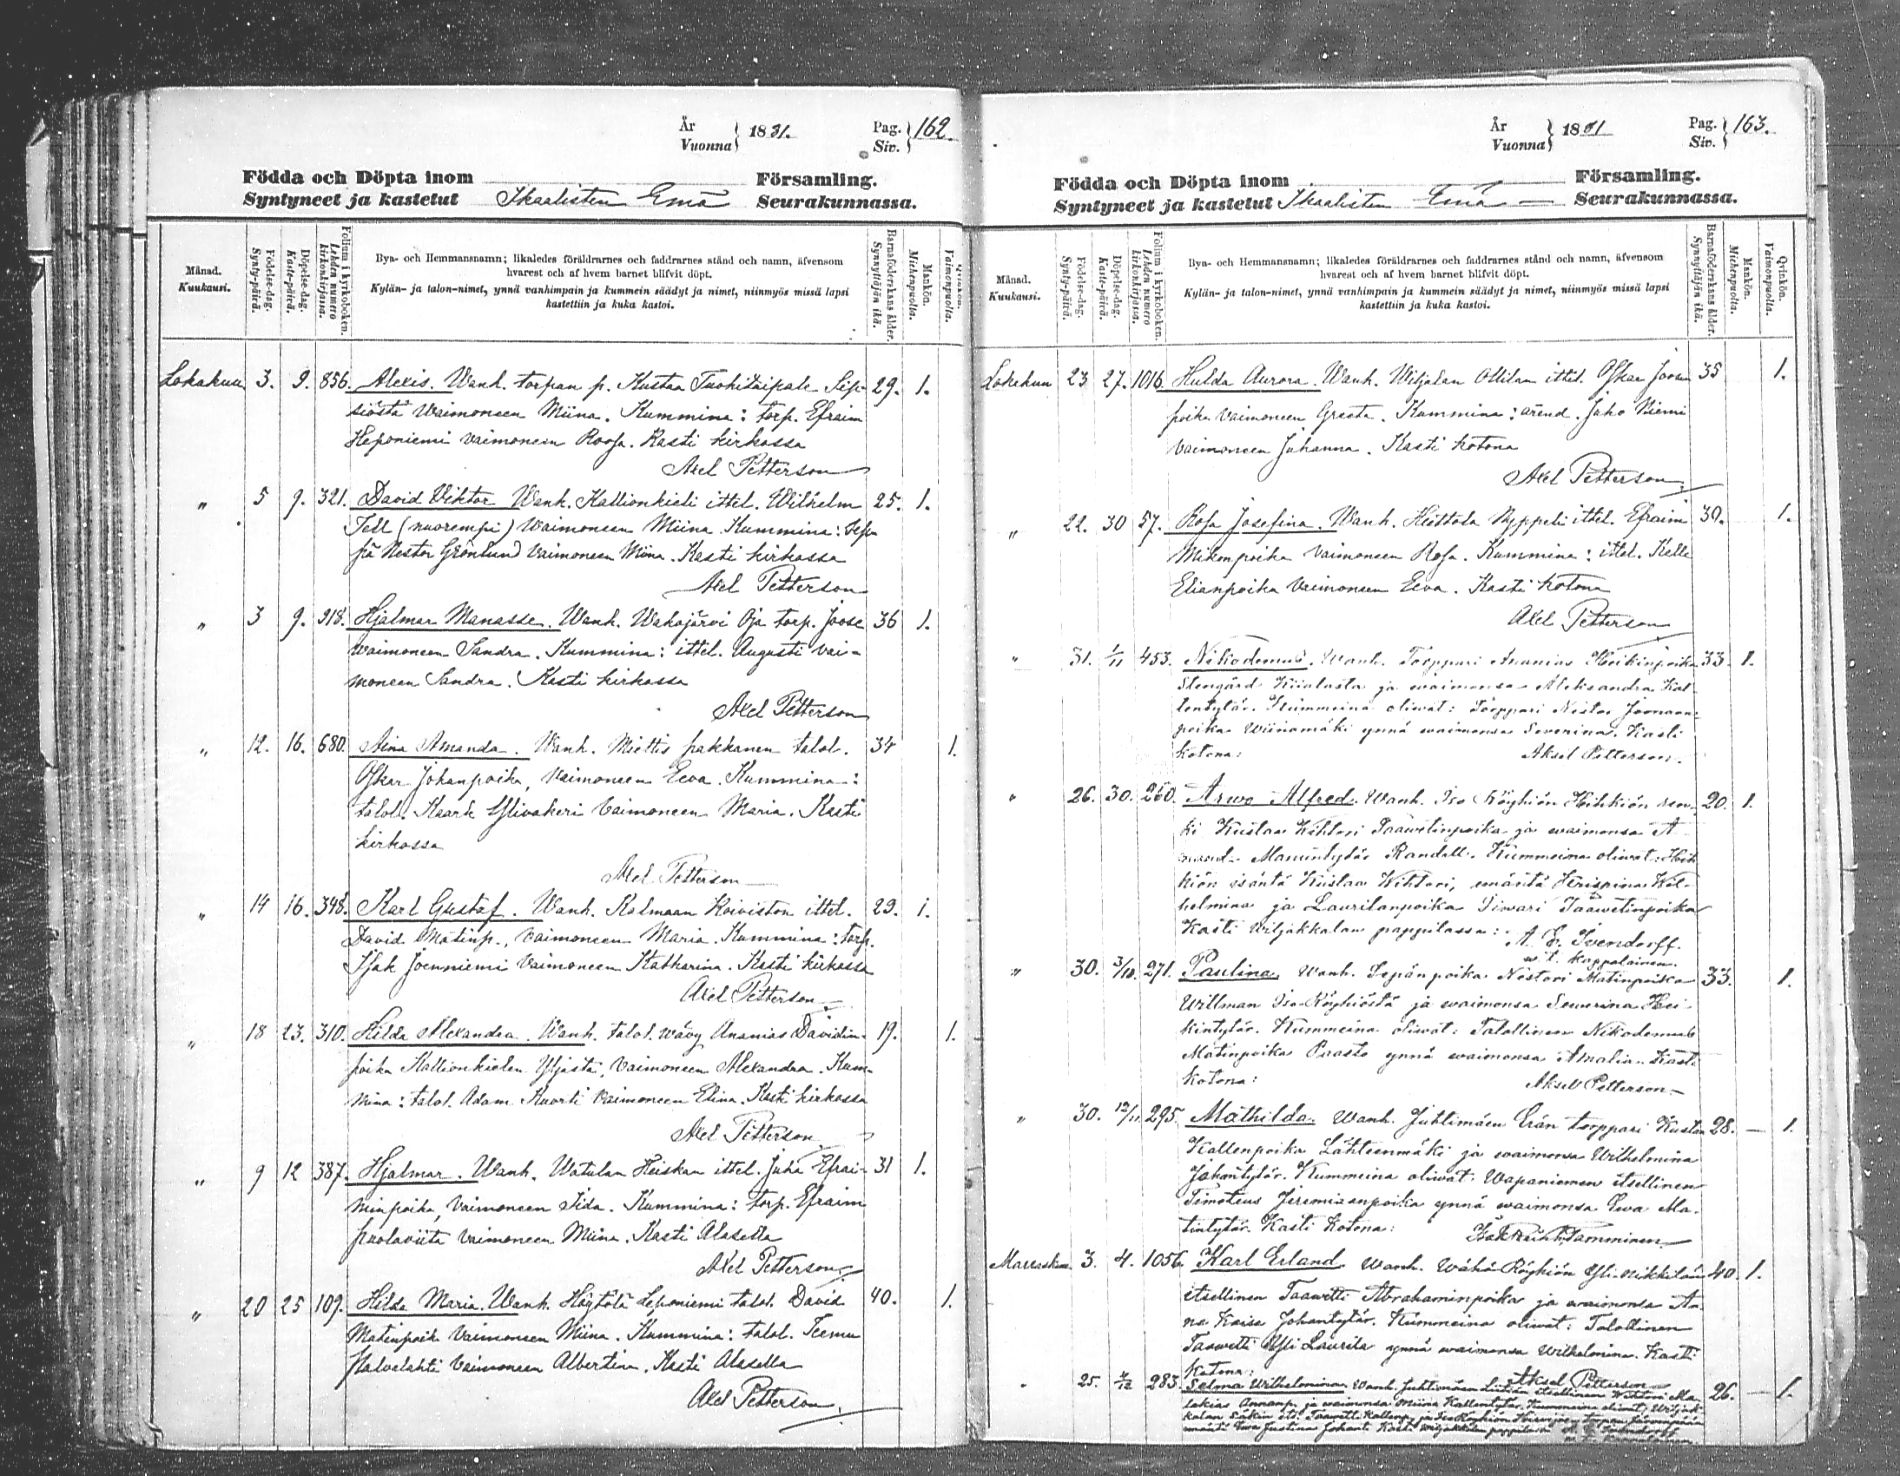 År
Vuonna } 1891.
Pag.
Siv. } 162.
Födda och Döpta inom Församling.
Syntyneet ja kastetut Ikaalisten Emä Seurakunnassa.
Månad.
Kuukausi.
Födelse-dag.
Synty-päivä.
Döpelse-dag.
Kaste-päivä.
Folium i kyrkoboken.
Lehden numero kirkonkirjassa.
Bya- och Hemmansnamn; likaledes föräldrarnes och faddrarnes stånd och namn, äfvensom
hvarest och af hvem barnet blifvit döpt.
Kylän- ja talon-nimet, ynnä vanhimpain ja kummein säädyt ja nimet, niinmyös missä lapsi
kastettiin ja kuka kastoi.
Barnaföderskans ålder.
Synnyttäjän ikä.
Mankön.
Miehenpuolta.
Qvinkön.
Vaimonpuolta.
Lokakuu 3. 9. 856. Alexis. Wanh. torpan p. Kustaa Tuokitaipale Sip- 29. 1.
siöstä Vaimoneen Miina. Kummina: torp. Efraim
Heponiemi vaimoneen Roosa. Kasti kirkossa
Axel Petterson
„ 5 9. 321. David Viktor Wanh. Kallionkieli ittel. Wilhelm 25. 1.
Tell (nuorempi) Vaimoneen Miina. Kummina: Sep-
pä Nestor Grönlund Vaimoneen Miina. Kasti kirkossa
Axel Petterson
„ 3 9. 918. Hjalmar Manasse. Wanh. Wahojärvi Oja torp. Joose 36 1.
Vaimoneen Sandra. Kummina: ittel. Augusti vai-
moneen Sandra. Kasti kirkossa
Axel Petterson
„ 12. 16. 680. Aina Amanda. Wanh. Miettis pakkanen talol. 34 1.
Oskar Johanpoika, Vaimoneen Eeva. Kummina:
talol. Kaark Ylivakeri Vaimoneen Maria. Kasti
kirkossa
Axel Petterson
„ 14 16. 348. Karl Gustaf. Wanh. Kalmaan Koiviston ittel. 29. 1.
David Matinp., Vaimoneen Maria. Kummina: torp.
Isak Joenniemi Vaimoneen Katharina. Kasti kirkossa
Axel Petterson
„ 18 23. 310. Hilda Alexandra. Wanh. talol. vävy Ananias Davidin- 19. 1.
poika Kallionkielen Yljästä, Vaimoneen Alexandra. Kum-
mina: talol. Adam Kuorti Vaimoneen Elina. Kasti kirkossa
Axel Petterson
„ 9 12 387. Hjalmar. Wanh. Watulan Heiskan ittel. Juha Efrai- 31 1.
minpoika, Vaimoneen Iida. Kummina: torp. Efraim
puolaviita Vaimoneen Miina. Kasti Alasella
Axel Petterson
„ 20 25 109. Hilda Maria. Wanh. Höytölä Leponiemi talol. David 40. 1.
Matinpoik Vaimoneen Miina. Kummina: talol. Teemu
Palvelahti Vaimoneen Albertina. Kasti Alasella
Axel Petterson
År
Vuonna } 1891
Pag.
Siv. } 163.
Födda och Döpta inom Församling.
Syntyneet ja kastetut Ikaalisten Emä Seurakunnassa.
Månad.
Kuukausi.
Födelse-dag.
Synty-päivä.
Döpelse-dag.
Kaste-päivä.
Folium i kyrkoboken.
Lehden numero kirkonkirjassa.
Bya- och Hemmansnamn; likaledes föräldrarnes och faddrarnes stånd och namn, äfvensom
hvarest och af hvem barnet blifvit döpt.
Kylän- ja talon-nimet, ynnä vanhimpain ja kummein säädyt ja nimet, niinmyös missä lapsi
kastettiin ja kuka kastoi.
Barnaföderskans ålder.
Synnyttäjän ikä.
Mankön.
Miehenpuolta.
Qvinkön.
Vaimonpuolta.
Lokakuu 23 27. 1016. Hulda Aurora. Wanh. Wiljalan Ollilan ittel. Oskar Joosen 35 1.
poika Vaimoneen Greeta. Kummina: arend. Juho Niemi
Vaimoneen Johanna. Kasti kotona
Axel Petterson
„ 22. 30 57. Rosa Josefina. Wanh. Heittola Nyppeli ittel. Efraim 30. 1.
Mikonpoika Vaimoneen Rosa. Kummina: ittel. Kalle
Elianpoika Vaimoneen Eeva. Kasti kotona
Axel Petterson
„ 31. 1/11 453. Nikodemus. Wanh. Torppari Ananias Heikinpoika 33. 1.
Stengård Kiialasta ja waimonsa Aleksandra Kal-
lentytär. Kummeina oliwat: Torppari Nestor Joonaan-
poika Wiinamäki ynnä waimonsa Severina. Kasti
kotona:
Aksel Petterson.
„ 26. 30. 260. Arwo Alfred. Wanh. Iso Röyhiön Heikkiön ren- 20. 1.
ki Kustaa Wihtori Taawetinpoika ja waimonsa A-
manda Manuntytär Randell. Kummeina oliwat: Heik-
kiön isäntä Kustaa Wihtori, emäntä Krispina Wil-
helmina ja Laurilanpoika Siwari Taawetinpoika
Kasti Wiljakkalan pappilassa: A. E. Ivendorff.
w. t. kappalainen.
„ 30. 3/10. 271. Paulina Wanh. Sepänpoika Nestori Matinpoika 33. 1.
Willman Iso-Röyhiöstä ja waimonsa Sewerina Hei-
kintytär. Kummeina oliwat: Talollinen Nikodemus
Matinpoika Paasto ynnä waimonsa Amalia. Kasti
kotona:
Aksel Petterson
„ 30. 12/11. 295. Mathilda. Wanh. Juhtimäen Erän torppari Kustaa 28. — 1.
Kallenpoika Lähteenmäki ja waimonsa Wilhelmina
Jakontytär. Kummeina oliwat: Wapaniemen itsellinen
Timoteus Jeremiaanpoika ynnä waimonsa Ewa Ma-
tintytär. Kasti kotona: Tamminen
Marraskuu 3. 4. 1056. Karl Erland Wanh. Wähä Röyhiön Yli-Nikkilän 40. 1.
itsellinen Taawetti Abrahaminpoika ja waimonsa An-
na Kaisa Johantytär. Kummeina oliwat: Talollinen
Taawetti Yli Laurila ynnä waimonsa Wilhelmina. Kasti
kotona:
Aksel Petterson
25. 2/12 283. Selma Wilhelmina Wanh. Juhtimäen itsellinen Wihtori Ma- 26. — 1.
lakias ja waimonsa Miina Kallentytär. Kummeina oliwat: Wiljak-
kalan
Kasti Wiljakkalan pappilassa A. E. Ivendorff